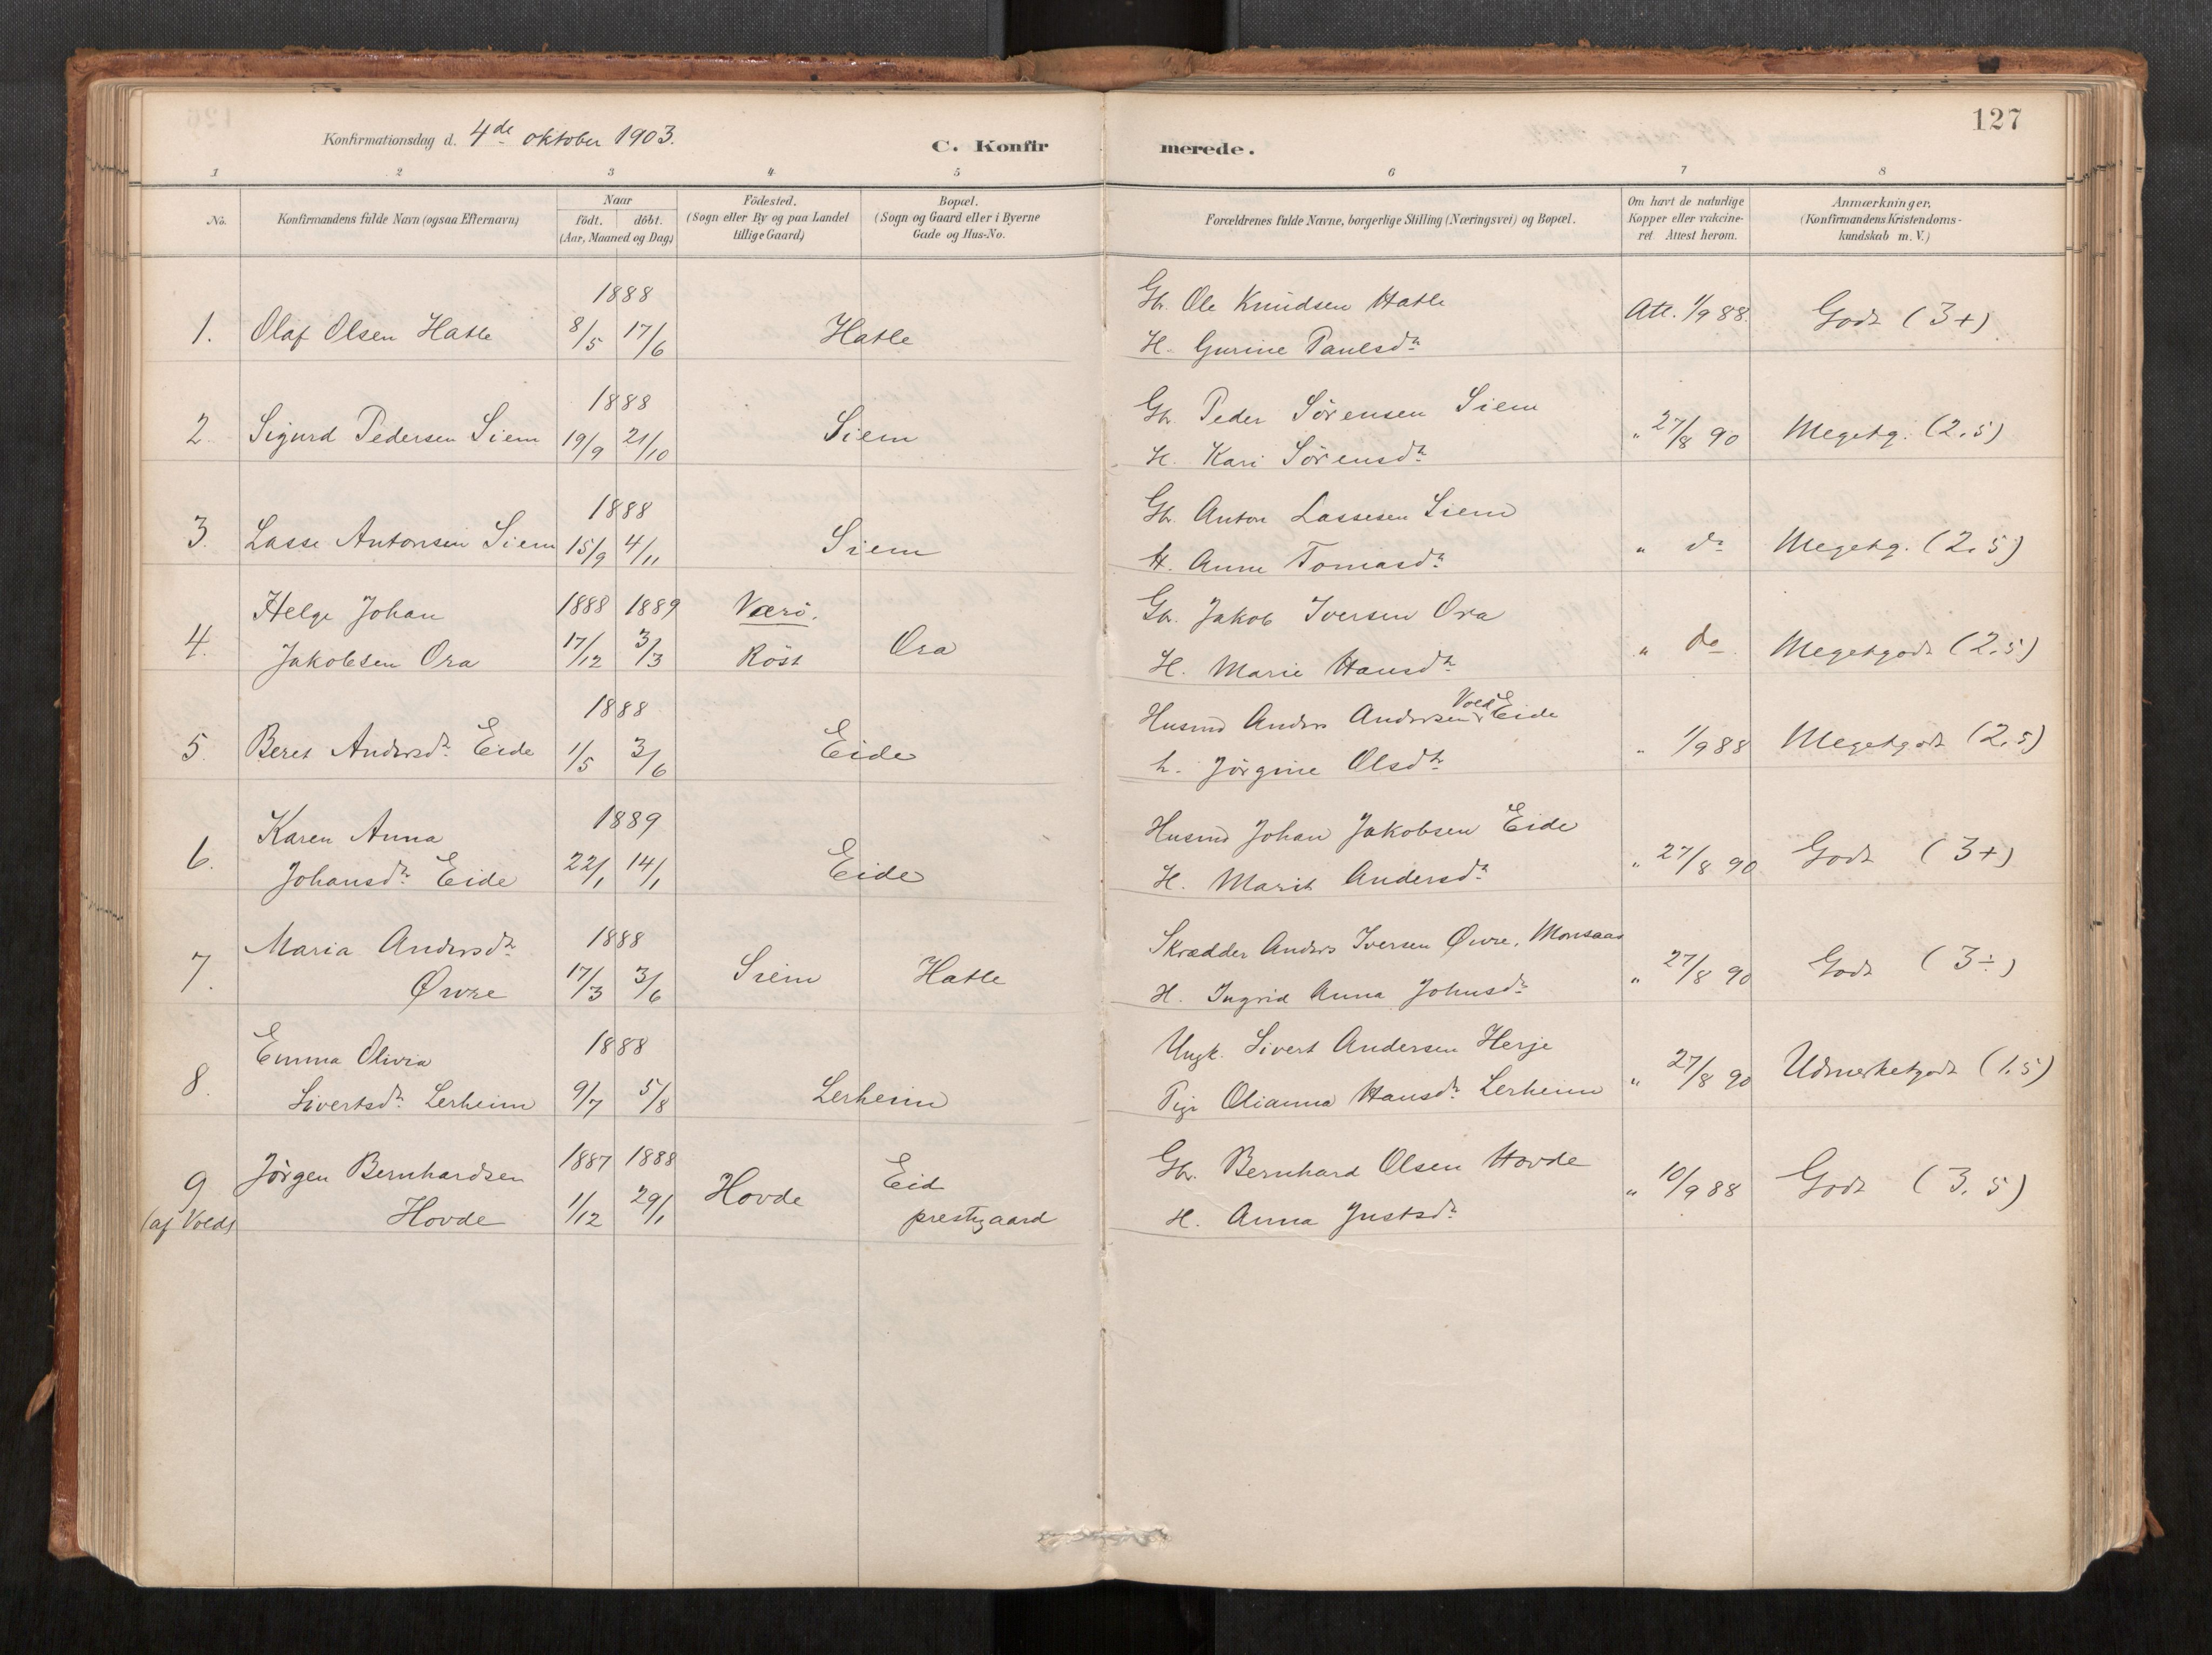 127
Konfirmationsdag d. 4de oktober 1903.
C. Konfirmerede.
1 2 3 4 5 6 7 8
No.
Konfirmandens fulde Navn (ogsaa Efternavn)
Naar
födt. döbt.
(Aar, Maaned og Dag.)
Födested.
(Sogn eller By og paa Landet
tillige Gaard.)
Bopæl.
(Sogn og Gaard eller i Byerne
Gade og Hus-No.
Forældrenes fulde Navne, borgerlige Stilling (Næringsvei) og Bopæl.
Om havt de naturlige
Kopper eller vakcine-
ret. Attest herom.
Anmærkninger.
(Konfirmandens Kristendoms-
kundskab m. V.)
1888
Gb. Ole Knudsen Hatle
1. Olaf Olsen Hatle 8/5 17/6 Hatle Att. 1/9 88. Godt (3+)
H. Gurine Paulsdr
1888
Gb. Peder Sörensen Siem
2. Sigurd Pedersen Siem 19/9 21/10 Siem " 27/8 90 Megetg. (2,5)
H. Kari Sörensdr
1888
Gb. Anton Lassesen Siem
3. Lasse Antonsen Siem 15/9 4/11 Siem " do Megetg. (2,5)
H. Anne Tomasdr
Helge Johan 1888 1889 Værö. Gb. Jakob Iversen Ora
4. Jakobsen Ora 17/12 3/3 Röst Ora " do Megetgodt (2,5)
H. Marie Hansdr
1888
Husmd Anders Andersen Vold Eide
5. Beret Andersdr Eide 1/5 3/6 Eide " 1/9 88 Megetgodt (2,5)
h. Jörgine Olsdr
Karen Anna 1889 Husmd Johan Jakobsen Eide
6. Johansdr Eide 22/1 14/1 Eide " 27/8 90 Godt (3+)
H. Marit Andersdr
Maria Andersdr 1888 Skrædder Anders Iversen Øvre, Monsaas
7. Øvre 17/3 3/6 Siem Hatle " 27/8 90 Godt (3÷)
H. Ingrid Anna Johnsdr
Emma Olivia 1888 Ungk. Sivert Andersen Herje
8. Sivertsdr Lerheim 9/7 5/8 Lerheim " 27/8 90 Udmerketgodt (1,5)
Pige Olianna Hansdr Lerheim
Jörgen Bernhardsen 1887 1888 Eid Gb. Bernhard Olsen Hovde
9 (af Vold) Hovde 1/12 29/1 Hovde prestgaard " 10/9 88 Godt (3,5)
H. Anna Justsdr